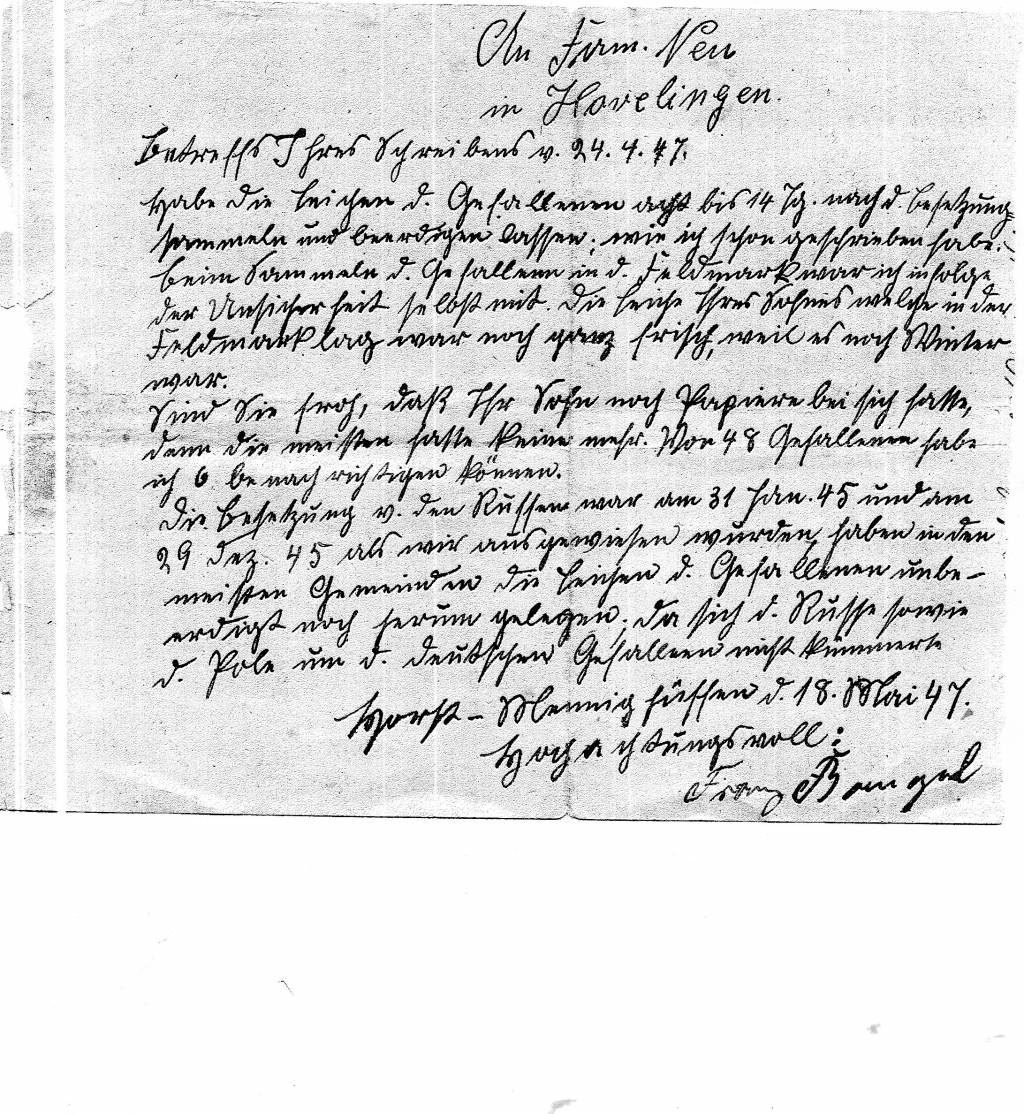 An Fam. Neu
in Havelingen.
Betreffs Ihres Schreibens v. 24.4.47.
Habe die Leichen d. Gefallenen acht bis 14 Tg. nach d. Besetzung
sammeln und beerdigen lassen, wie ich schon geschrieben habe.
Beim Sammeln d. Gefallenn in d. Feldmark war ich infolge
der Unsicherheit selbst mit. Die Leiche Ihres Sohnes welche in der
Feldmark lag war noch ganz frisch, weil es noch Winter
war.
Sind Sie froh, daß Ihr Sohn noch Papiere bei sich hatte,
denn die meisten hatte keine mehr. Von 48 Gefallenen habe
ich 6 benachrichtigen können.
Die Besetzung v. den Russen war am 31 Jan. 45 und am
29 Dez. 45 als wir ausgewiesen wurden, haben in den
meisten Gemeinden die Leichen d. Gefallenen unbe-
erdigt noch herum gelegen. Da sich d. Russe sowie
d. Pole um d. deutschen Gefallenen nicht kümmerte
Horst - Mennighüffen d. 18. Mai 47.
Hochachtungsvoll:
Franz